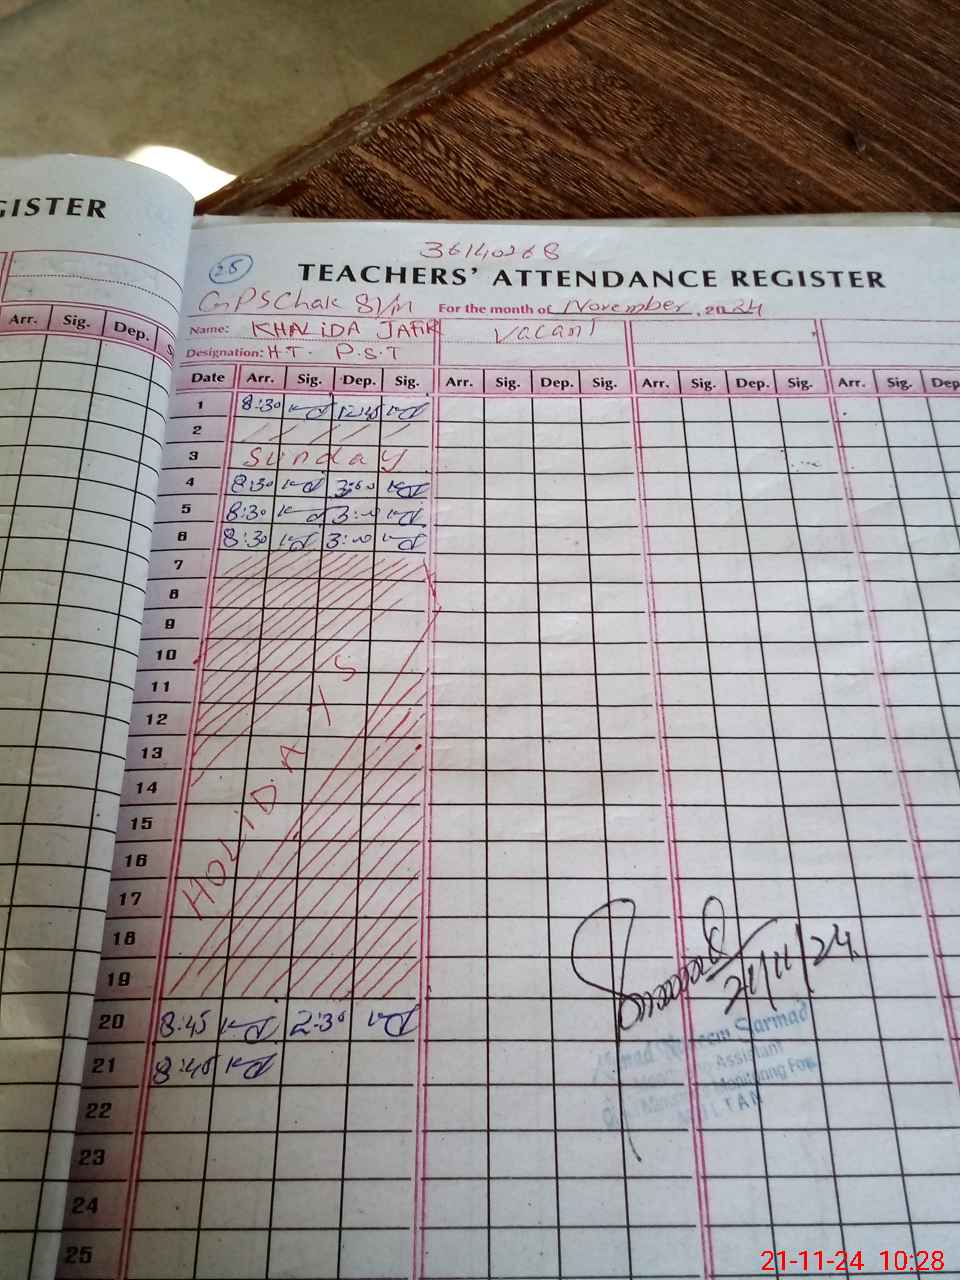 GISTER
Arr. Sig. Dep. S
36140268
25
TEACHERS' ATTENDANCE REGISTER
GPS Chak 81/M For the month of November, 2024
Name: KHALIDA JAFIR Vacant
Designation: H.T. P.S.T
Date Arr. Sig. Dep. Sig. Arr. Sig. Dep. Sig. Arr. Sig. Dep. Sig. Arr. Sig. Dep
1 8:30 12:45
2
3 Sunday
4 8:30 3:00
5 8:30 3:00
6 8:30 3:00
7
8
9
10
11
12
13
14
15
16
17
18
19
HOLIDAYS
20 8:45 2:30
21 8:45
22
23
24
25
21/11/24
Sarmad
Assistant
Monitoring Force
MULTAN
21-11-24 10:28